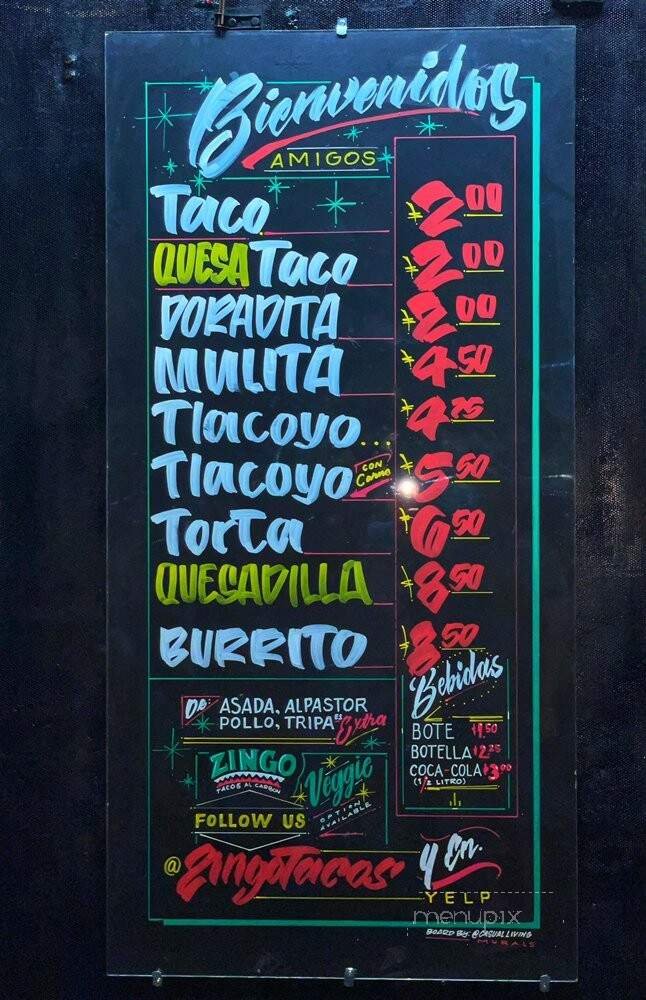 Bienvenidos
AMIGOS
Taco $2.00
QUESA Taco $2.00
DORADITA $2.00
MULITA $4.50
Tlacoyo... $4.75
Tlacoyo CON Carne $5.50
TorTa $6.50
QUESADILLA $8.50
BURRITO $8.50
De: ASADA, ALPASTOR
POLLO, TRIPA ES Extra
Bebidas
BOTE $1.50
BOTELLA $2.25
COCA-COLA $3.00
(1/2 LITRO)
ZINGO
TACOS AL CARBON
Veggie
OPTION
AVAILABLE
FOLLOW US
@ZingoTacos
y En.
YELP
menupix
BOARD BY: @CASUALLIVING
MURALS